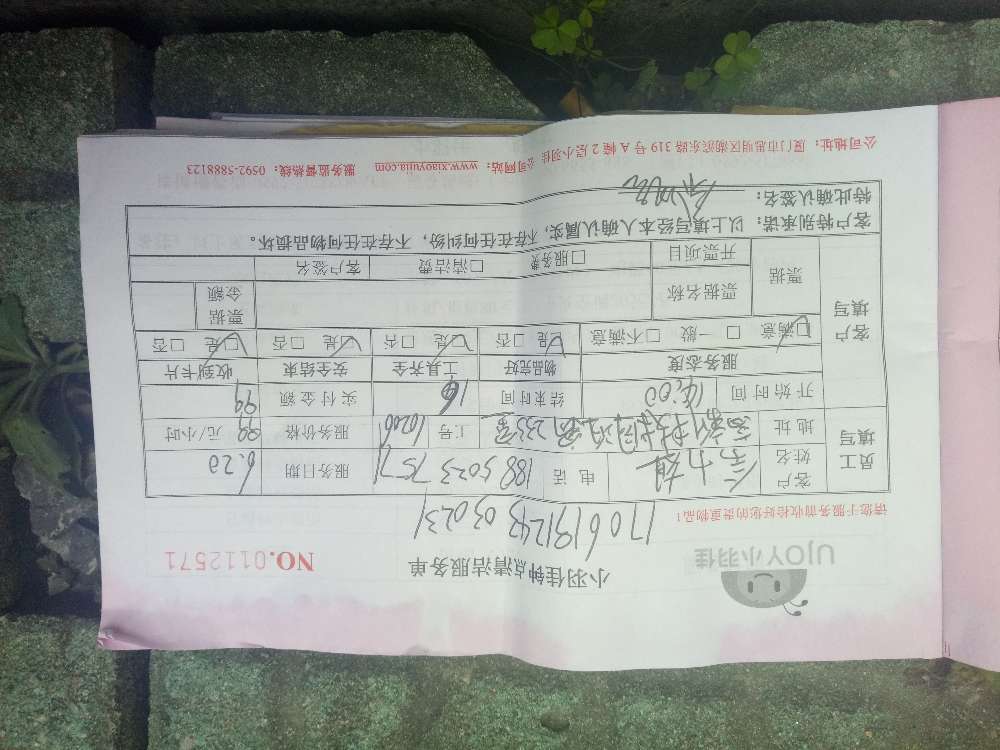 UJOY小羽佳
小羽佳钟点清洁服务单
NO.0112571
请您于服务前收拾好您的贵重物品!
1706191243030231
员工填写
客户姓名 电话 188 5023 7571 服务日期 6.20
地址 233 工号 10200 服务价格 元/小时
开始时间 14:00 结束时间 16 实付金额 99
客户填写
服务态度 物品完好 工具齐全 安全结束 收到卡片
满意 一般 不满意 是 否 是 否 是 否 是 否
票据 票据名称 票据金额
开票项目 服务费 清洁费 客户签名
客户特别承诺:以上填写经本人确认属实,不存在任何纠纷,不存在任何物品损坏。
特此确认签名:
公司地址:厦门市思明区湖滨东路319号A幢2层小羽佳 公司网站:www.xiaoyujia.com 服务监督热线:0592-5888123